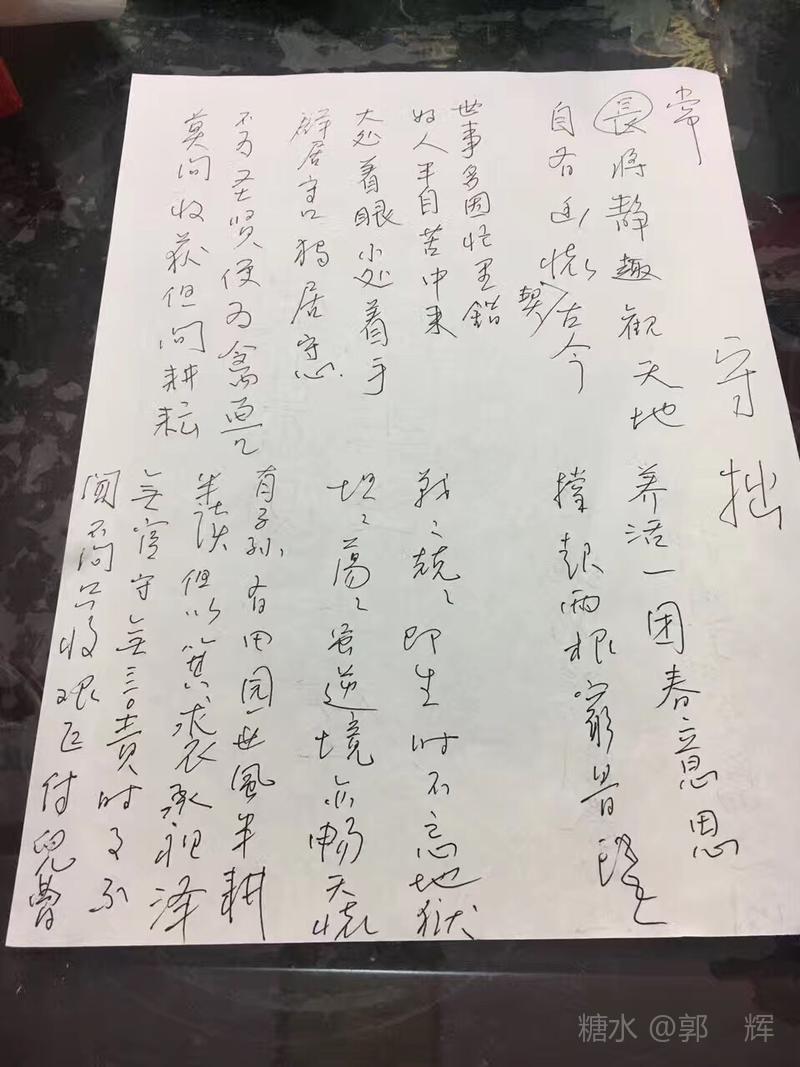 常
長将静趣觀天地
自有幽怀契古今
世事多因忙里錯
好人半自苦中来
大处着眼小处着手
群居守口独居守心
不为圣贤便为禽兽
莫问收获但问耕耘
守拙
养活一团春意思
撑起两根穷骨
战々兢々即生时不忘地狱
坦々荡々虽逆境亦畅天怀
有子孙有田园家风半耕
半读但以箕裘承祖泽
無官守無言责时事不
闻不问只将艰巨付兒曹
糖水 @郭 辉